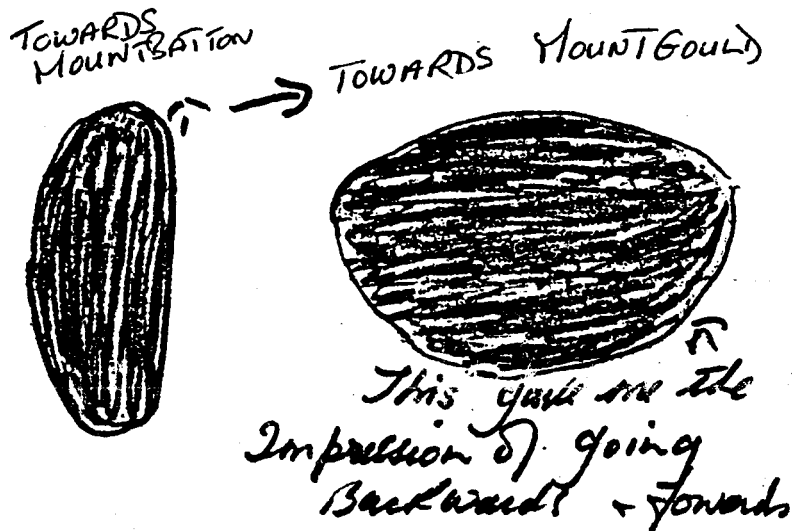 TOWARDS
MOUNTBATTON
TOWARDS MOUNTGOULD
This gave me the
Impression of going
Backwards + Towards